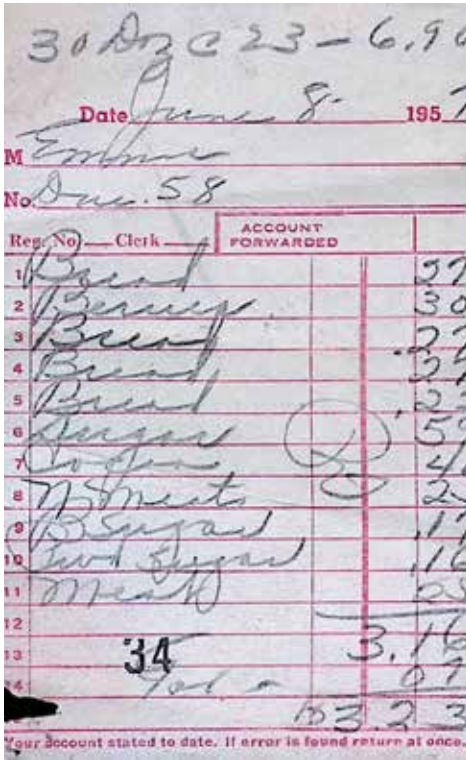 30 Doz @ 23 — 6.90
Date June 8 - 195
M Emma
No. Due. 58
Reg. No. Clerk ACCOUNT FORWARDED
1 Bread 27
2 30
3 Bread .27
4 Bread 27
5 Bread .23
6 Sugar 59
7
8 25
9 B Sugar .17
10 Sugar .16
11 05
12 3.16
13 34 07
14 3.23
Your account stated to date. If error is found return at once.